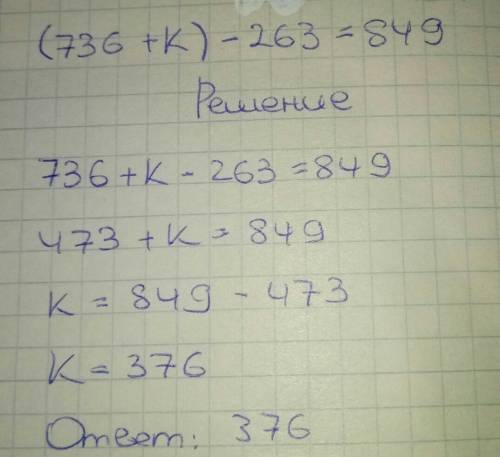 (736 + К) - 263 = 849
Решение
736 + К - 263 = 849
473 + К = 849
К = 849 - 473
К = 376
Ответ: 376